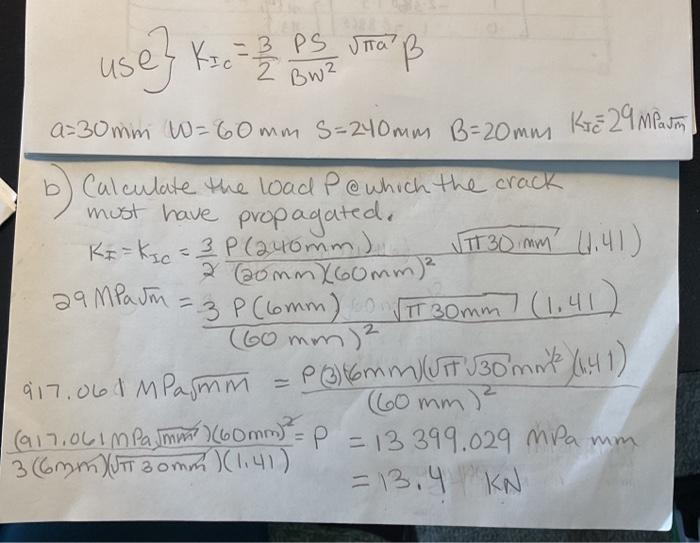 use} K_Ic = 3/2 PS/BW² √πa β
a=30mm W=60mm S=240mm B=20mm K_Ic=29 MPa√m
b) Calculate the load P @ which the crack
must have propagated.
K_I = K_Ic = 3/2 P(240mm)/(20mm)(60mm)² √π30 mm (1.41)
29 MPa√m = 3 P(6mm)/(60 mm)² √π 30mm (1.41)
917.061 MPa√mm = P(3)(6mm)(√π √30 mm^1/2)(1.41)/(60 mm)²
(917.061 MPa√mm)(60mm)²/3(6mm)(√π 30mm)(1.41) = P = 13 399.029 MPa mm
= 13.4 KN